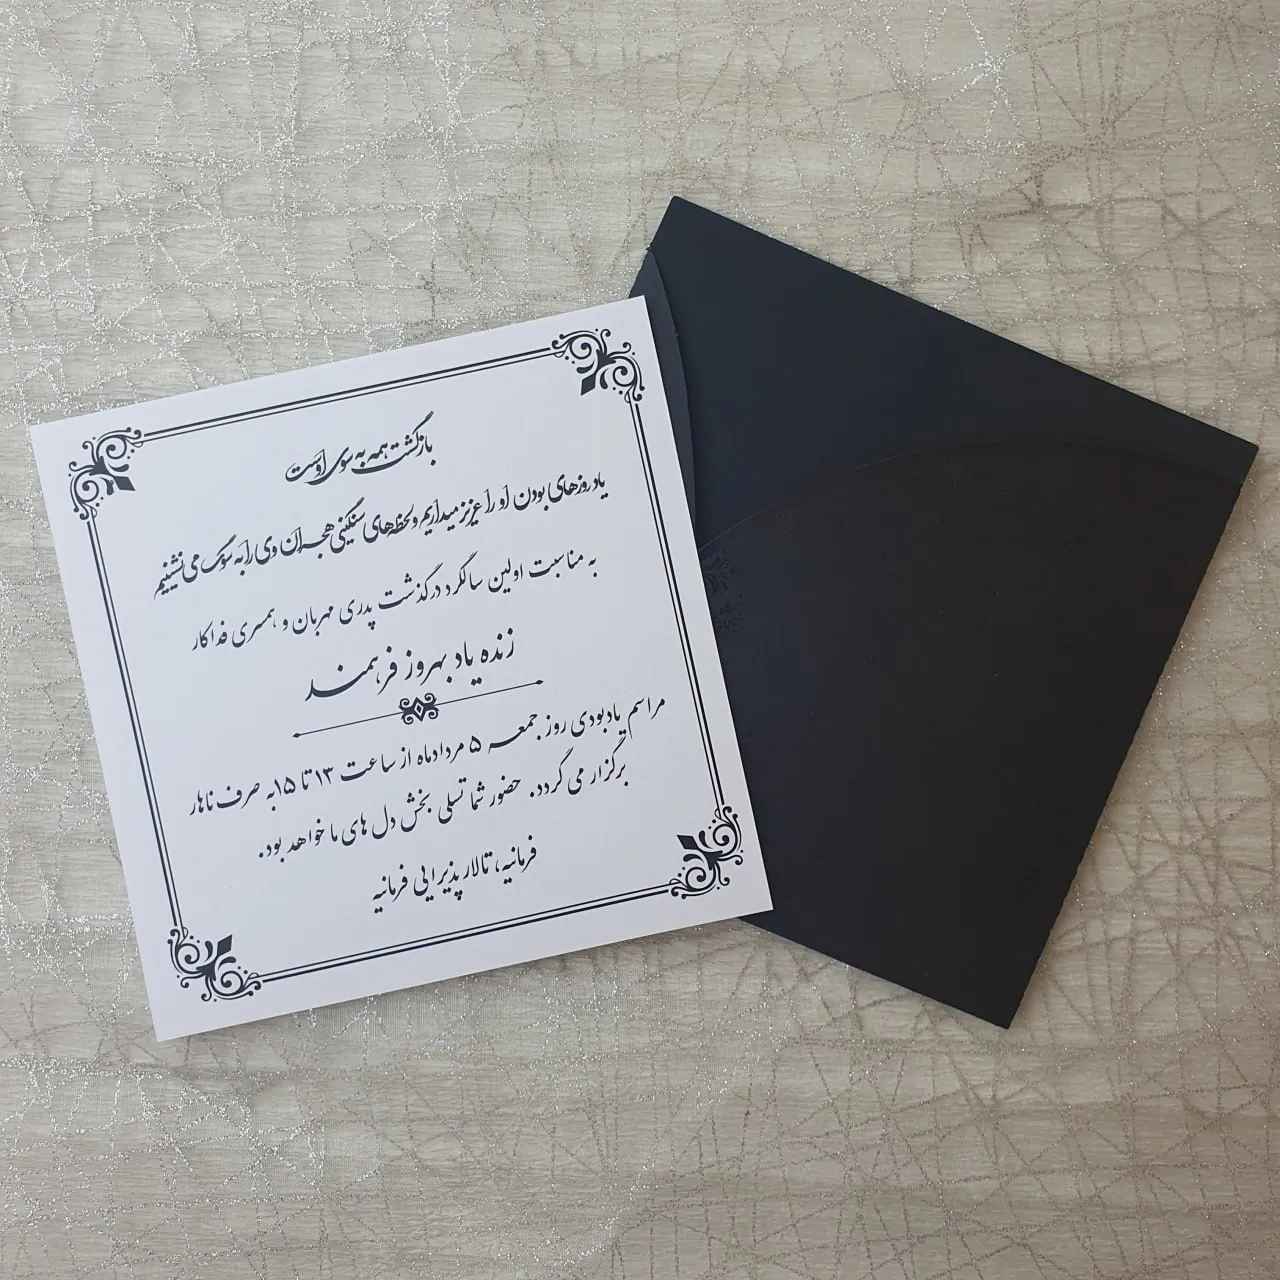 بازگشت همه به سوی اوست
یاد روزهای بودن او را عزیز میداریم و لحظه‌های سنگینی هجران وی را به سوگ می نشینیم
به مناسبت اولین سالگرد درگذشت پدری مهربان و همسری فداکار
زنده یاد بهروز فرهمند
مراسم یادبودی روز جمعه ۵ مردادماه از ساعت ۱۳ تا ۱۵ به صرف ناهار
برگزار می گردد. حضور شما تسلی بخش دل های ما خواهد بود.
فرمانیه، تالار پذیرایی فرمانیه